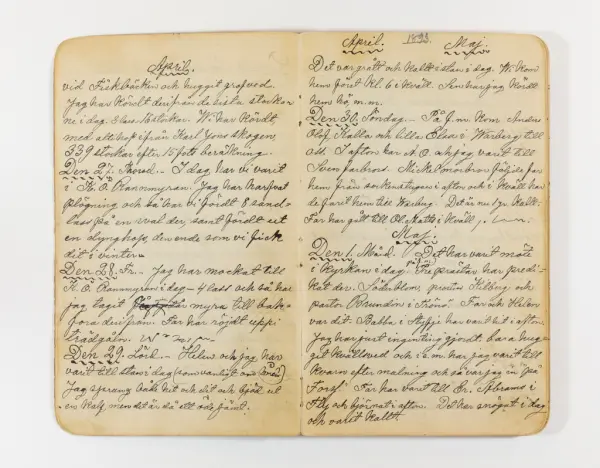 April.
vid Fäkbäcken och huggit profved.
Jag har kördt derifrån de sista stockar
ne i dag. 8 lass 16 stockar. Vi har kördt
med allihop ifrån Karl Jons skogen,
339 stockar efter 15 fots beräkning.
Den 27. Thorsd. – I dag har vi varit
i K. O. Rammyran. Jag har harfvat
plögning, och så har vi fördt 8 sand-
lass på en sval der, samt fördt ut
en dynghop, den enda som vi fick
dit i vinter.
Den 28. Fr. – Jag har mockat till
K. O. Rammyran i dag – 4 lass och så har
jag tagit myra till bak-
fora derifrån. Far har röjdt uppi
trädgåln.
Den 29. Lörd. – Helen och jag har
varit till stan i dag (som vanligt om Lörd.)
Jag sprang både hit och dit och bjöd ut
en kalf men det är då ett öde jämt.
April. 1893. Maj.
Det var grått och kallt i stan i dag. Vi kom
hem föret Kl. 6 i kväll. Sen har jag kördt
hem hö, m. m.
Den 30. Söndag. – På f. m. kom Anders
Olof Kalla och lilla Elsa i Wirberg till
oss. I afton har A. O. och jag varit till
Sven farbrors. Mickelmorbror följde far
hem från sockenstugan i afton och i kväll har
de farit hem till Wirberg. Det är nu 1 gr. kallt.
Far har gått till Ol. Mats i kväll,
Maj.
Den 1. Månd. – Det har varit möte
i kyrkan i dag. Tre prestar har predi-
kat der. Söderblom, prosten Kilbng och
pastor Brundin i Trönö. Far och Helen
var dit. Babba i Flygje har varit hit i afton.
Jag har just ingenting gjordt bara hug-
git kvällsved och i e. m. har jag varit till
kvarn efter malning och så var jag in "på
Fors". Far har varit till Er. Abrams i
Fly och björnat i afton. Det har snögat i dag
och varit kallt.